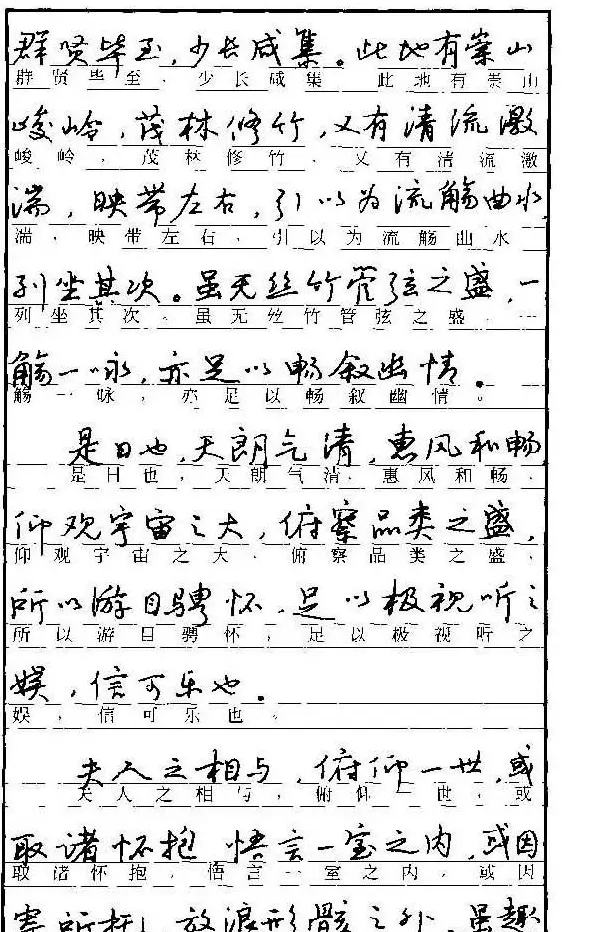 群贤毕至,少长咸集。此地有崇山
群贤毕至、少长咸集 此地有崇山
峻岭,茂林修竹,又有清流激
峻岭,茂林修竹、又有清流激
湍,映带左右,引以为流觞曲水,
湍、映带左右,引以为流觞曲水
列坐其次。虽无丝竹管弦之盛,一
列坐其次。虽无丝竹管弦之盛、一
觞一咏,亦足以畅叙幽情。
觞一咏,亦足以畅叙幽情。
是日也,天朗气清,惠风和畅,
是日也,天朗气清、惠风和畅、
仰观宇宙之大,俯察品类之盛,
仰观宇宙之大、俯察品类之盛、
所以游目骋怀,足以极视听之
所以游目骋怀,足以极视听之
娱,信可乐也。
娱,信可乐也。
夫人之相与,俯仰一世,或
夫人之相与,俯仰一世,或
取诸怀抱 悟言一室之内,或因
取诸怀抱,悟言一室之内,或因
寄所托,放浪形骸之外。虽趣